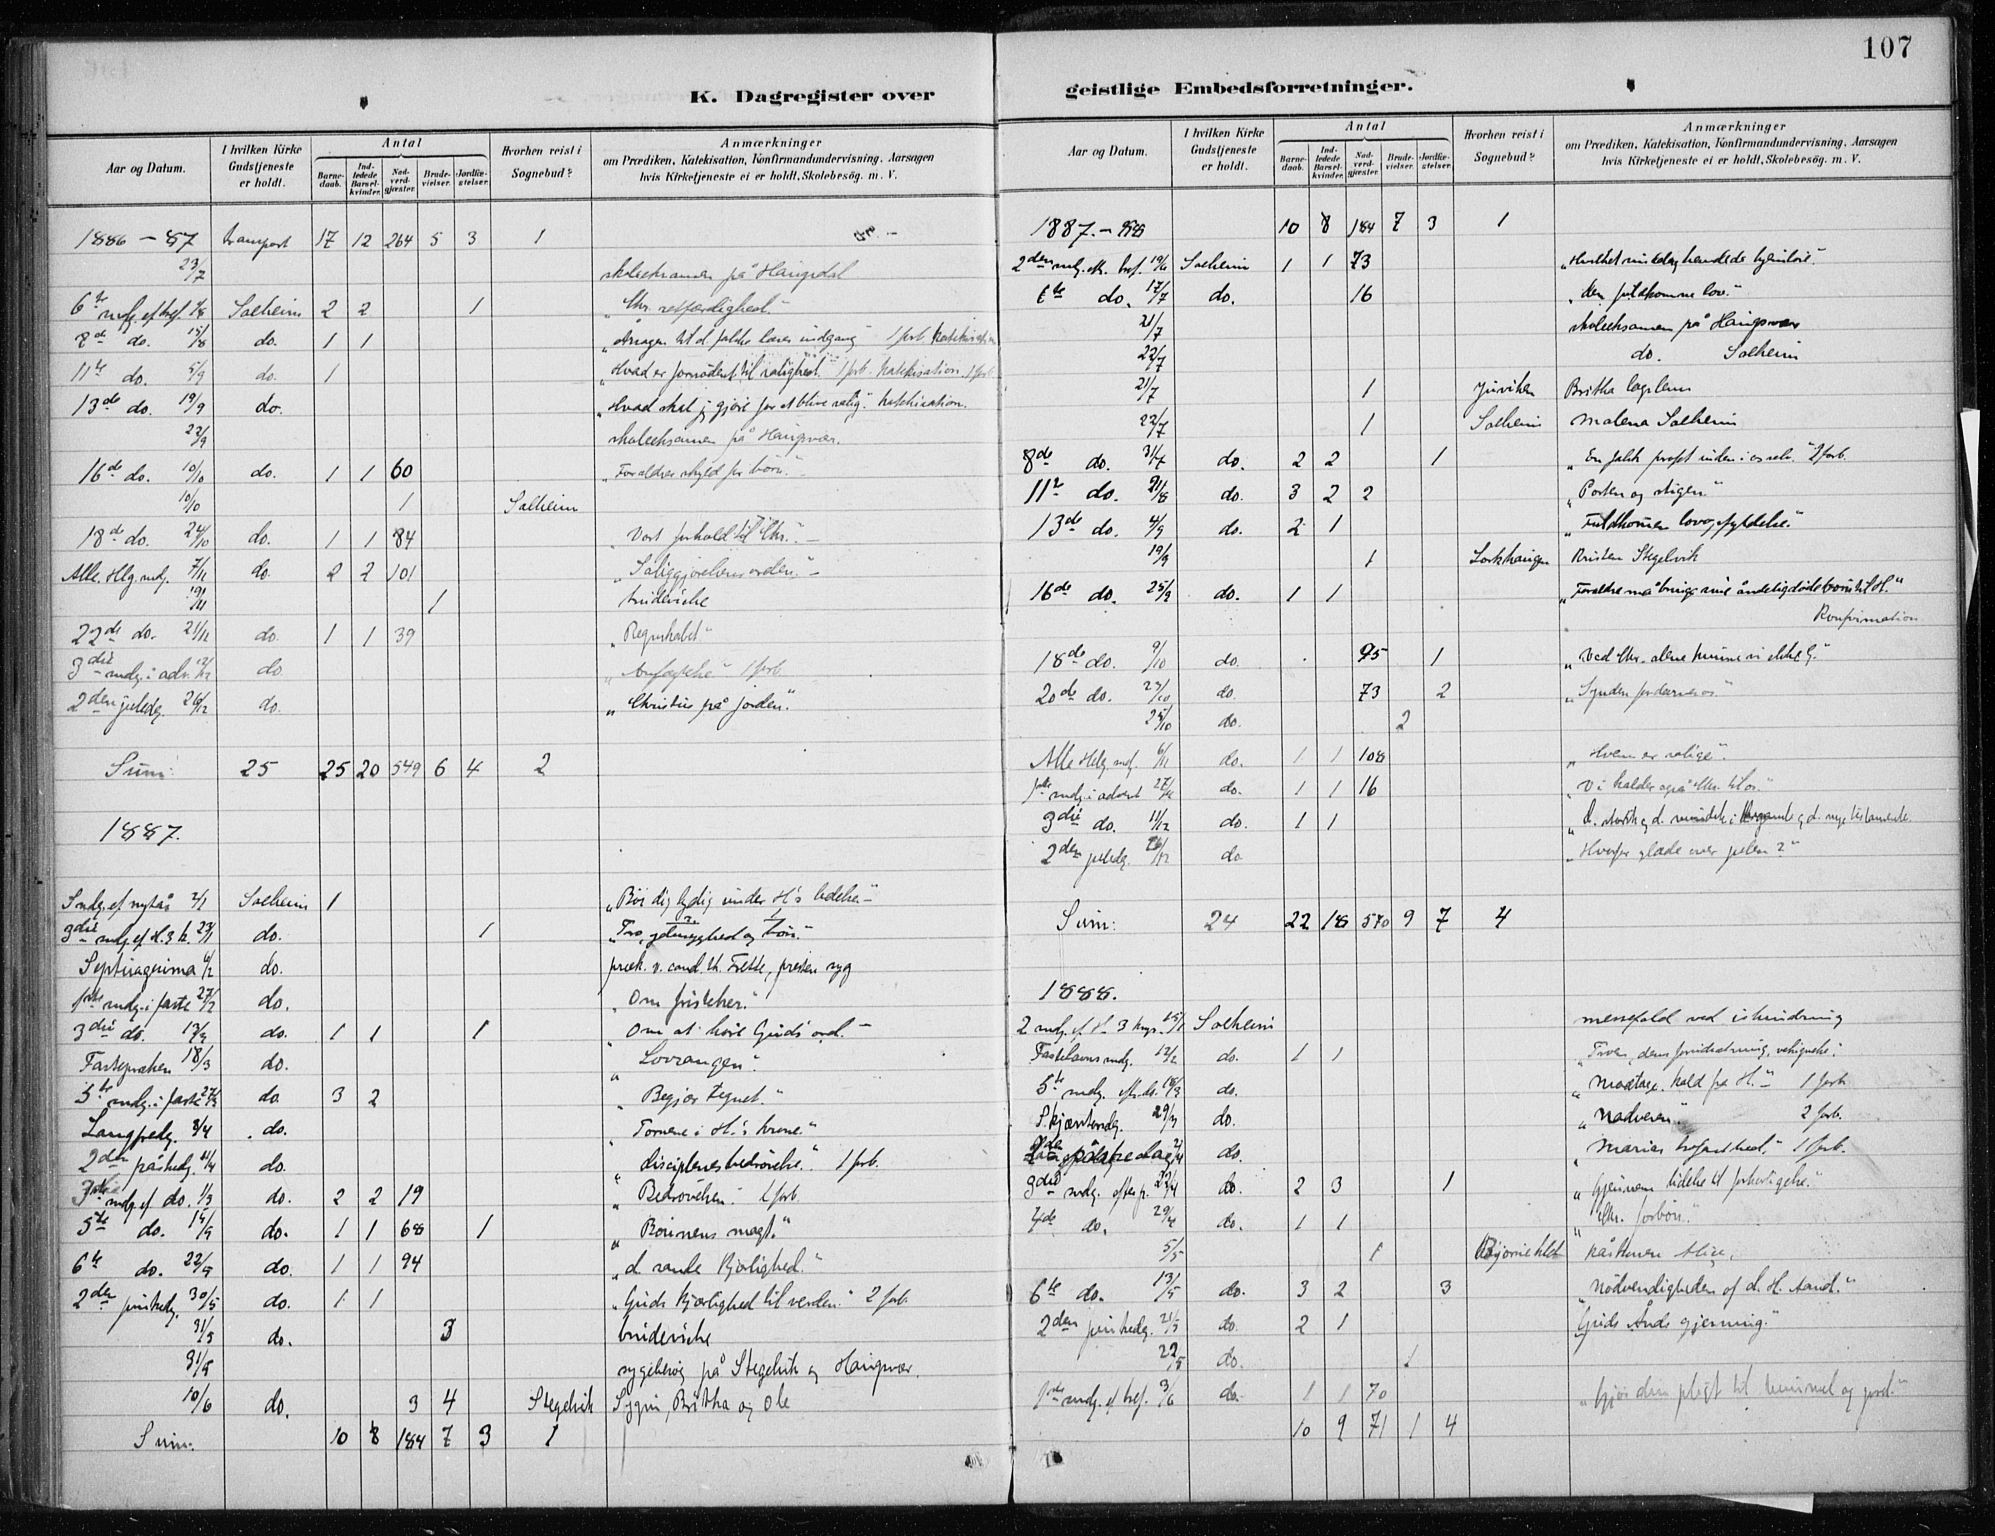 107
K. Dagregister over
geistlige Embedsforretninger.
Aar og Datum.
I hvilken Kirke Gudstjeneste er holdt.
Antal
Barne-daab.
Ind-ledede Barsel-kvinder.
Nad-verd-gjæster.
Brude-vielser.
Jordfæ-stelser.
Hvorhen reist i Sognebud?
Anmærkninger
om Prædiken, Katekisation, Konfirmandundervisning. Aarsagen
hvis Kirketjeneste ei er holdt, Skolebesög. m. V.
1886 – 87 transport 17 12 264 5 3 1
23/7 skoleeksamen på
6te Solheim 2 2 1 "Chr. retfærdighed."
8de do. 15/8 do. 1 1 1 forb. katekisation
11te do. 5/9 do. 1 "Hvad er fornødent til salighed." 1 forb. katekisation
13de do. 19/9 do. "Hvad skal jeg gjøre for at blive salig". katekisation.
22/9 skoleeksamen på Haugsvær.
16de do. 10/10 do. 1 1 60 "Forældres skyld for børn."
10/10 1 Solheim
18de do. 24/10 do. 1 1 84 "Vort forhold til Chr." –
Alle Hlg. sndg. 7/11 do. 2 2 101
1 brudevielse
22de do. 21/11 do. 1 1 39 "Regnskabet"
3die sndg. i adv. 12/12 do. 1 forb.
2den juledg. 26/12 do. "Christus på jorden."
Sum: 25 25 20 549 6 4 2
1887.
Sndg. ef. nytår 2/1 Solheim 1 "Bøi dig lydig under H's ledelse"
3die sndg. ef. H. 3 k. 23/1 do. 1 "Tro, ydmyghed og bøn."
Septuagesima 6/2 do. præk. v. cand. th. Frette, presten syg
1ste sndg. i faste 27/2 do. "Om fristelser."
3die do. 13/3 do. 1 1 1 "Om at høre Guds ord."
Fastepræken 18/3 do. "Lovsangen."
5te sndg. i faste 27/3 do. 3 2 "Begjær tegnet."
Langfredg. 8/4 do. "Tornene i H.'s krone."
2den påskedg. 11/4 do. "disciplenes bedrøvelse." 1 forb.
3die sndg. ef. do. 1/5 do. 2 2 19 "Bedrøvelsen" 1 forb.
5te do. 15/5 do. 1 1 68 1 "Bønnens magt."
6te do. 22/5 do. 1 1 94 "d. sande kjærlighed."
2den pinsedg. 30/5 do. 1 1 "Guds kjærlighed til verden." 2 forb.
31/5 do. 3 brudevielse
31/5 sygebesøg på Stegelvik og Haugsvær.
10/6 do. 3 4 Stegelvik Sygin, Britha og Ole
Sum. 10 8 184 7 3 1
Aar og Datum.
I hvilken Kirke Gudstjeneste er holdt.
Antal
Barne-daab.
Ind-ledede Barsel-kvinder.
Nad-verd-gjæster.
Brude-vielser.
Jordfæ-stelser.
Hvorhen reist i Sognebud?
Anmærkninger
om Prædiken, Katekisation, Konfirmandundervisning. Aarsagen
hvis Kirketjeneste ei er holdt, Skolebesög. m. V.
1887. – 88 10 8 184 7 3 1
2den sndg. eft. tref. 19/6 Solheim 1 1 73
6te do. 17/7 do. 16 "den fuldkomne lov."
21/7 skoleeksamen på Haugsvær
22/7 do. Solheim
21/7 1 Juviken Britha
22/7 1 Solheim Malena Solheim
8de do. 31/7 do. 2 2 1 "En falsk profet inden i os selv." 2 forb.
11te do. 21/8 do. 3 2 2 "Porten og stigen"
13de do. 4/9 do. 2 1 "Fuldkommen lovopfyldelse."
19/9 1 Kristen Stegelvik
16de do. 25/9 do. 1 1 "Forældre må bringe sine åndelig døde børn til H."
Konfirmation
18de do. 9/10 do. 95 1
20de do. 23/10 do. 73 2 "Synden fordærver os"
25/10 do. 2
Alle Hlg. sndg. 6/11 do. 1 1 108 "Hvem er salige".
1ste sndg. i advent 27/11 do. 1 1 16
3die do. 11/12 do. 1 1 "d. største og d. mindste i d. gamle og d. nye testamente
2den juledg. 26/12 do. "Hvorfor glæde over julen?"
Sum: 24 22 18 570 9 7 4
1888.
2 sndg. ef. H. 3 kgr. 15/1 Solheim messefald ved ishindring
Fastelavns sndg. 12/2 do. 1 1 "Troen, dens forudsætning,
5te sndg. 18/3 do. 1 forb.
Skjærtorsdg. 29/3 do. "Nadveren". 2 forb.
2den påskedag 2/4 do. "Marias trofasthed," 1 forb.
3die sndg. efter p. 22/4 do. 2 3 1 "Gjennem lidelse til forherligelse."
4de do. 29/4 do. 1 1 "Chr. forbøn."
5/5 1
6te do. 13/5 do. 3 2 3 "Nødvendigheden af d. H. Aand."
2den pinsedg. 21/5 do. 2 1 "Guds Ånds gjerning."
22/5 do. 1
1ste sndg. ef. tref. 3/6 do. 1 1 70 "Gjør den pligt til himmel og jord."
10 9 71 1 4